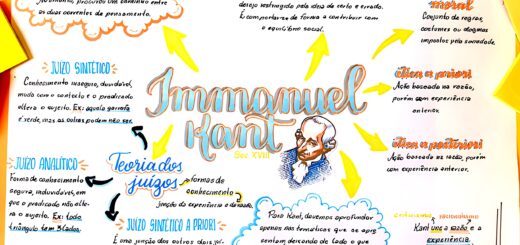 entre
as duas correntes de pensamento.
desejo restringido pela ideia de certo e errado.
E comportar-se de forma a contribuir com
o equilíbrio social.
moral
Conjunto de regras,
costumes ou dogmas
impostos pela sociedade.
JUÍZO SINTÉTICO
Conhecimento inseguro, duvidável,
muda com o contexto e o predicado
altera o sujeito. Ex: aquela garrafa
é verde, mas as outras podem não ser.
Immanuel
Kant
Séc XVIII
ética a priori
Ação baseada na razão,
porém com experiência
anterior.
ética a posteriori
Ação baseada na razão, porém
com experiência anterior.
JUÍZO ANALÍTICO
Forma de conhecimento
segura, indubidável, em
que o predicado não alte-
ra o sujeito. Ex: todo
triângulo tem 3 lados.
Teoria dos
juízos
formas de
conhecimento
junção da experiência e da razão
JUÍZO SINTÉTICO A PRIORI
É uma junção dos outros dois juí-
Para Kant, devemos aprofundar
apenas nas temáticas que se apre-
sentam deixando de lado o que
racionalismo
Kant une a razão e a
experiência